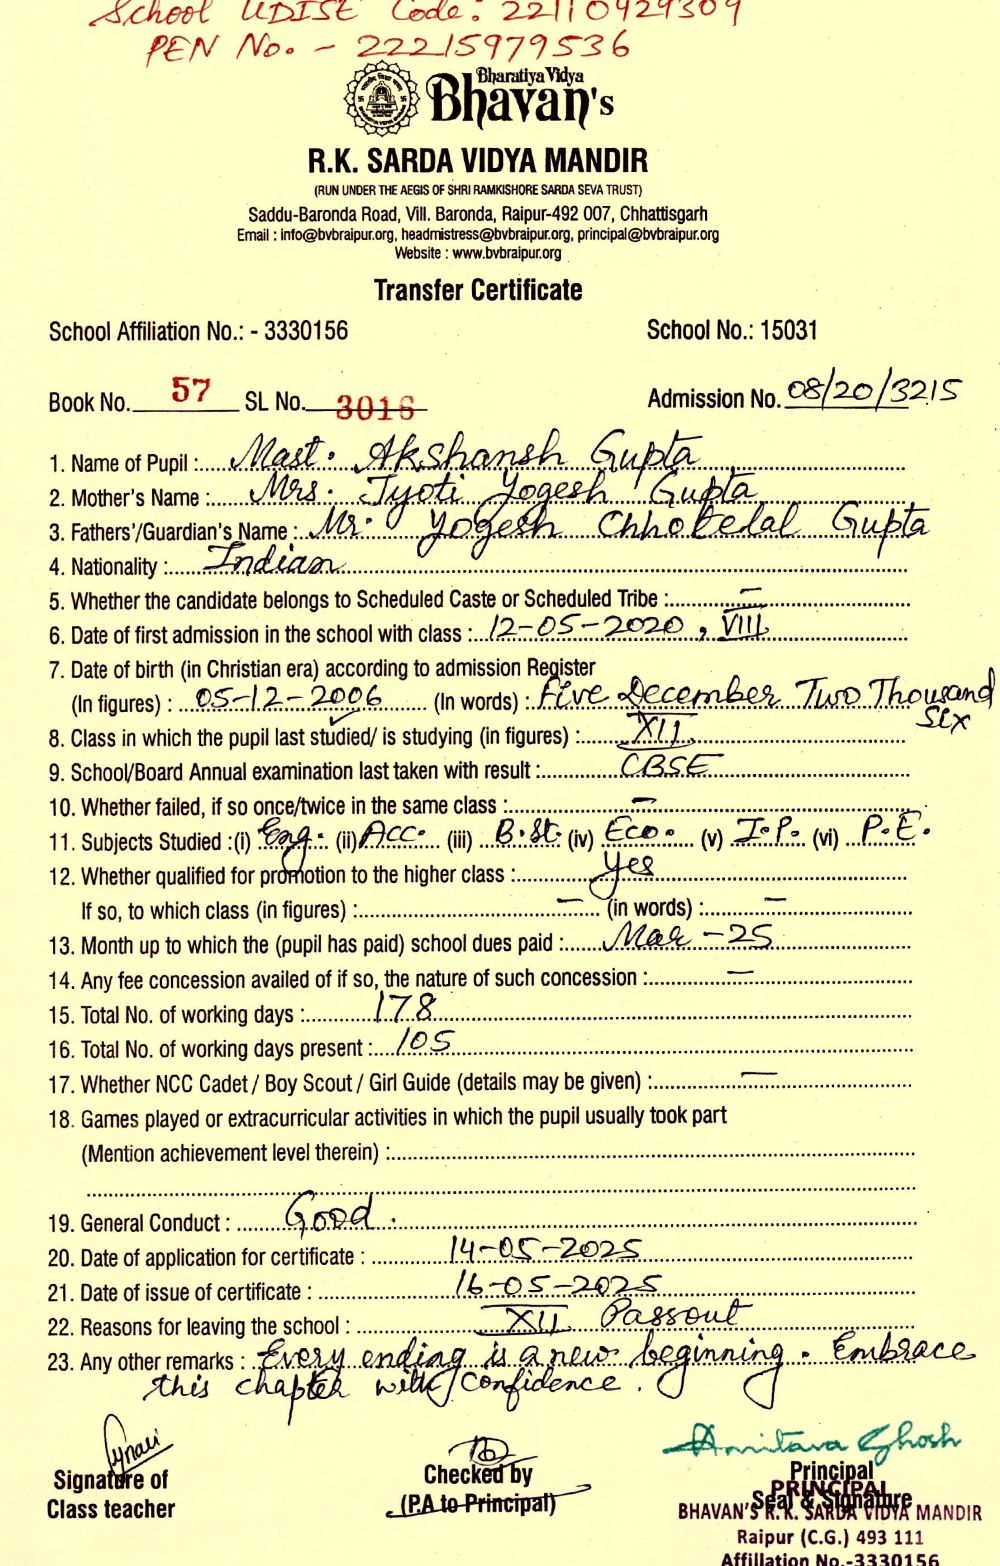 School UDISE Code: 22110929309
PEN No. - 22215979536
Bharatiya Vidya
Bhavan's
R.K. SARDA VIDYA MANDIR
(RUN UNDER THE AEGIS OF SHRI RAMKISHORE SARDA SEVA TRUST)
Saddu-Baronda Road, Vill. Baronda, Raipur-492 007, Chhattisgarh
Email : info@bvbraipur.org, headmistress@bvbraipur.org, principal@bvbraipur.org
Website : www.bvbraipur.org
Transfer Certificate
School Affiliation No.: - 3330156 School No.: 15031
Book No. 57 SL No. 3016 Admission No. 08/20/3215
1. Name of Pupil : Mast. Akshansh Gupta
2. Mother's Name : Mrs. Jyoti Yogesh Gupta
3. Fathers'/Guardian's Name : Mr. Yogesh Chhotelal Gupta
4. Nationality : Indian
5. Whether the candidate belongs to Scheduled Caste or Scheduled Tribe : —
6. Date of first admission in the school with class : 12-05-2020, VIII
7. Date of birth (in Christian era) according to admission Register
(In figures) : 05-12-2006 (In words) : Five December Two Thousand
Six
8. Class in which the pupil last studied/ is studying (in figures) : XII
9. School/Board Annual examination last taken with result : CBSE
10. Whether failed, if so once/twice in the same class : —
11. Subjects Studied :(i) Eng. (ii) Acc. (iii) B.St. (iv) Eco. (v) I.P. (vi) P.E.
12. Whether qualified for promotion to the higher class : Yes
If so, to which class (in figures) : — (in words) : —
13. Month up to which the (pupil has paid) school dues paid : Mar - 25
14. Any fee concession availed of if so, the nature of such concession : —
15. Total No. of working days : 178
16. Total No. of working days present : 105
17. Whether NCC Cadet / Boy Scout / Girl Guide (details may be given) : —
18. Games played or extracurricular activities in which the pupil usually took part
(Mention achievement level therein) :
19. General Conduct : Good.
20. Date of application for certificate : 14-05-2025
21. Date of issue of certificate : 16-05-2025
22. Reasons for leaving the school : XII Passout
23. Any other remarks : Every ending is a new beginning. Embrace
this chapter with confidence.
Amitava Ghosh
Signature of Class teacher
Checked by
(P.A to Principal)
Principal
Seal & Signature
PRINCIPAL
BHAVAN'S R.K. SARDA VIDYA MANDIR
Raipur (C.G.) 493 111
Affiliation No.-3330156